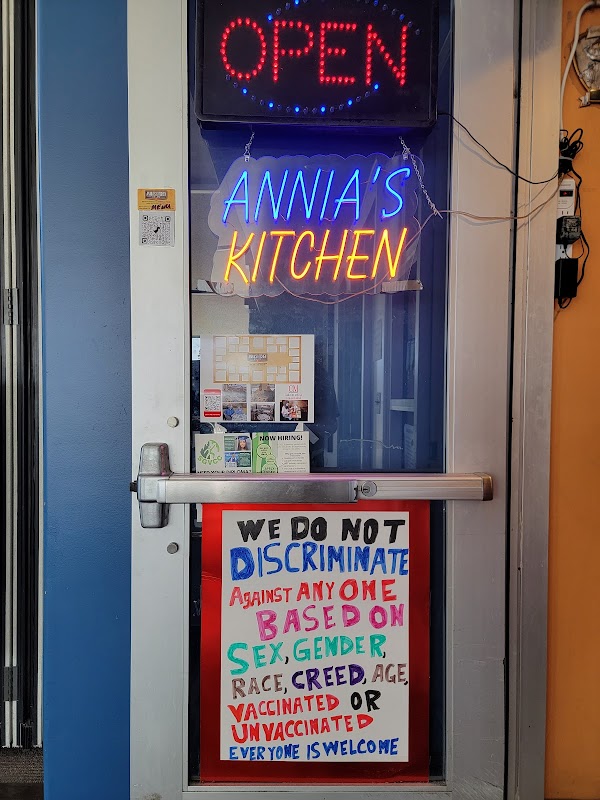 OPEN
ANNIA'S
KITCHEN
MENU
NOW HIRING!
WE DO NOT
DISCRIMINATE
AGAINST ANY ONE
BASED ON
SEX, GENDER,
RACE, CREED, AGE,
VACCINATED OR
UNVACCINATED
EVERYONE IS WELCOME